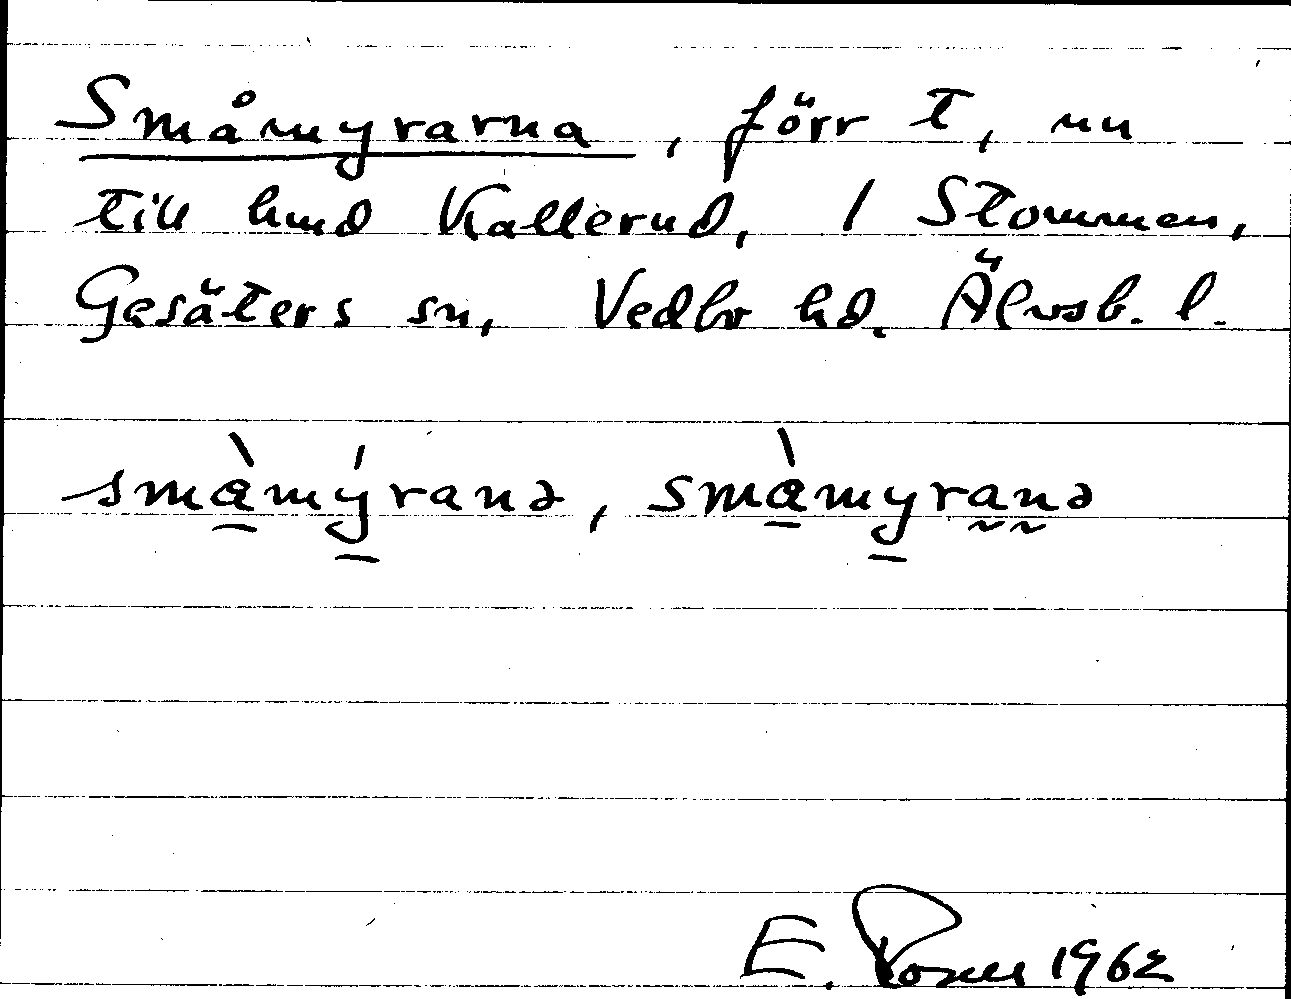 Småmyrarna, förr t, nu
till hmd Kallerud, 1 Stommen,
Gesäters sn, Vedbo hd. Älvsb. l.
småmýranə, småmyranə
E. Rosen 1962